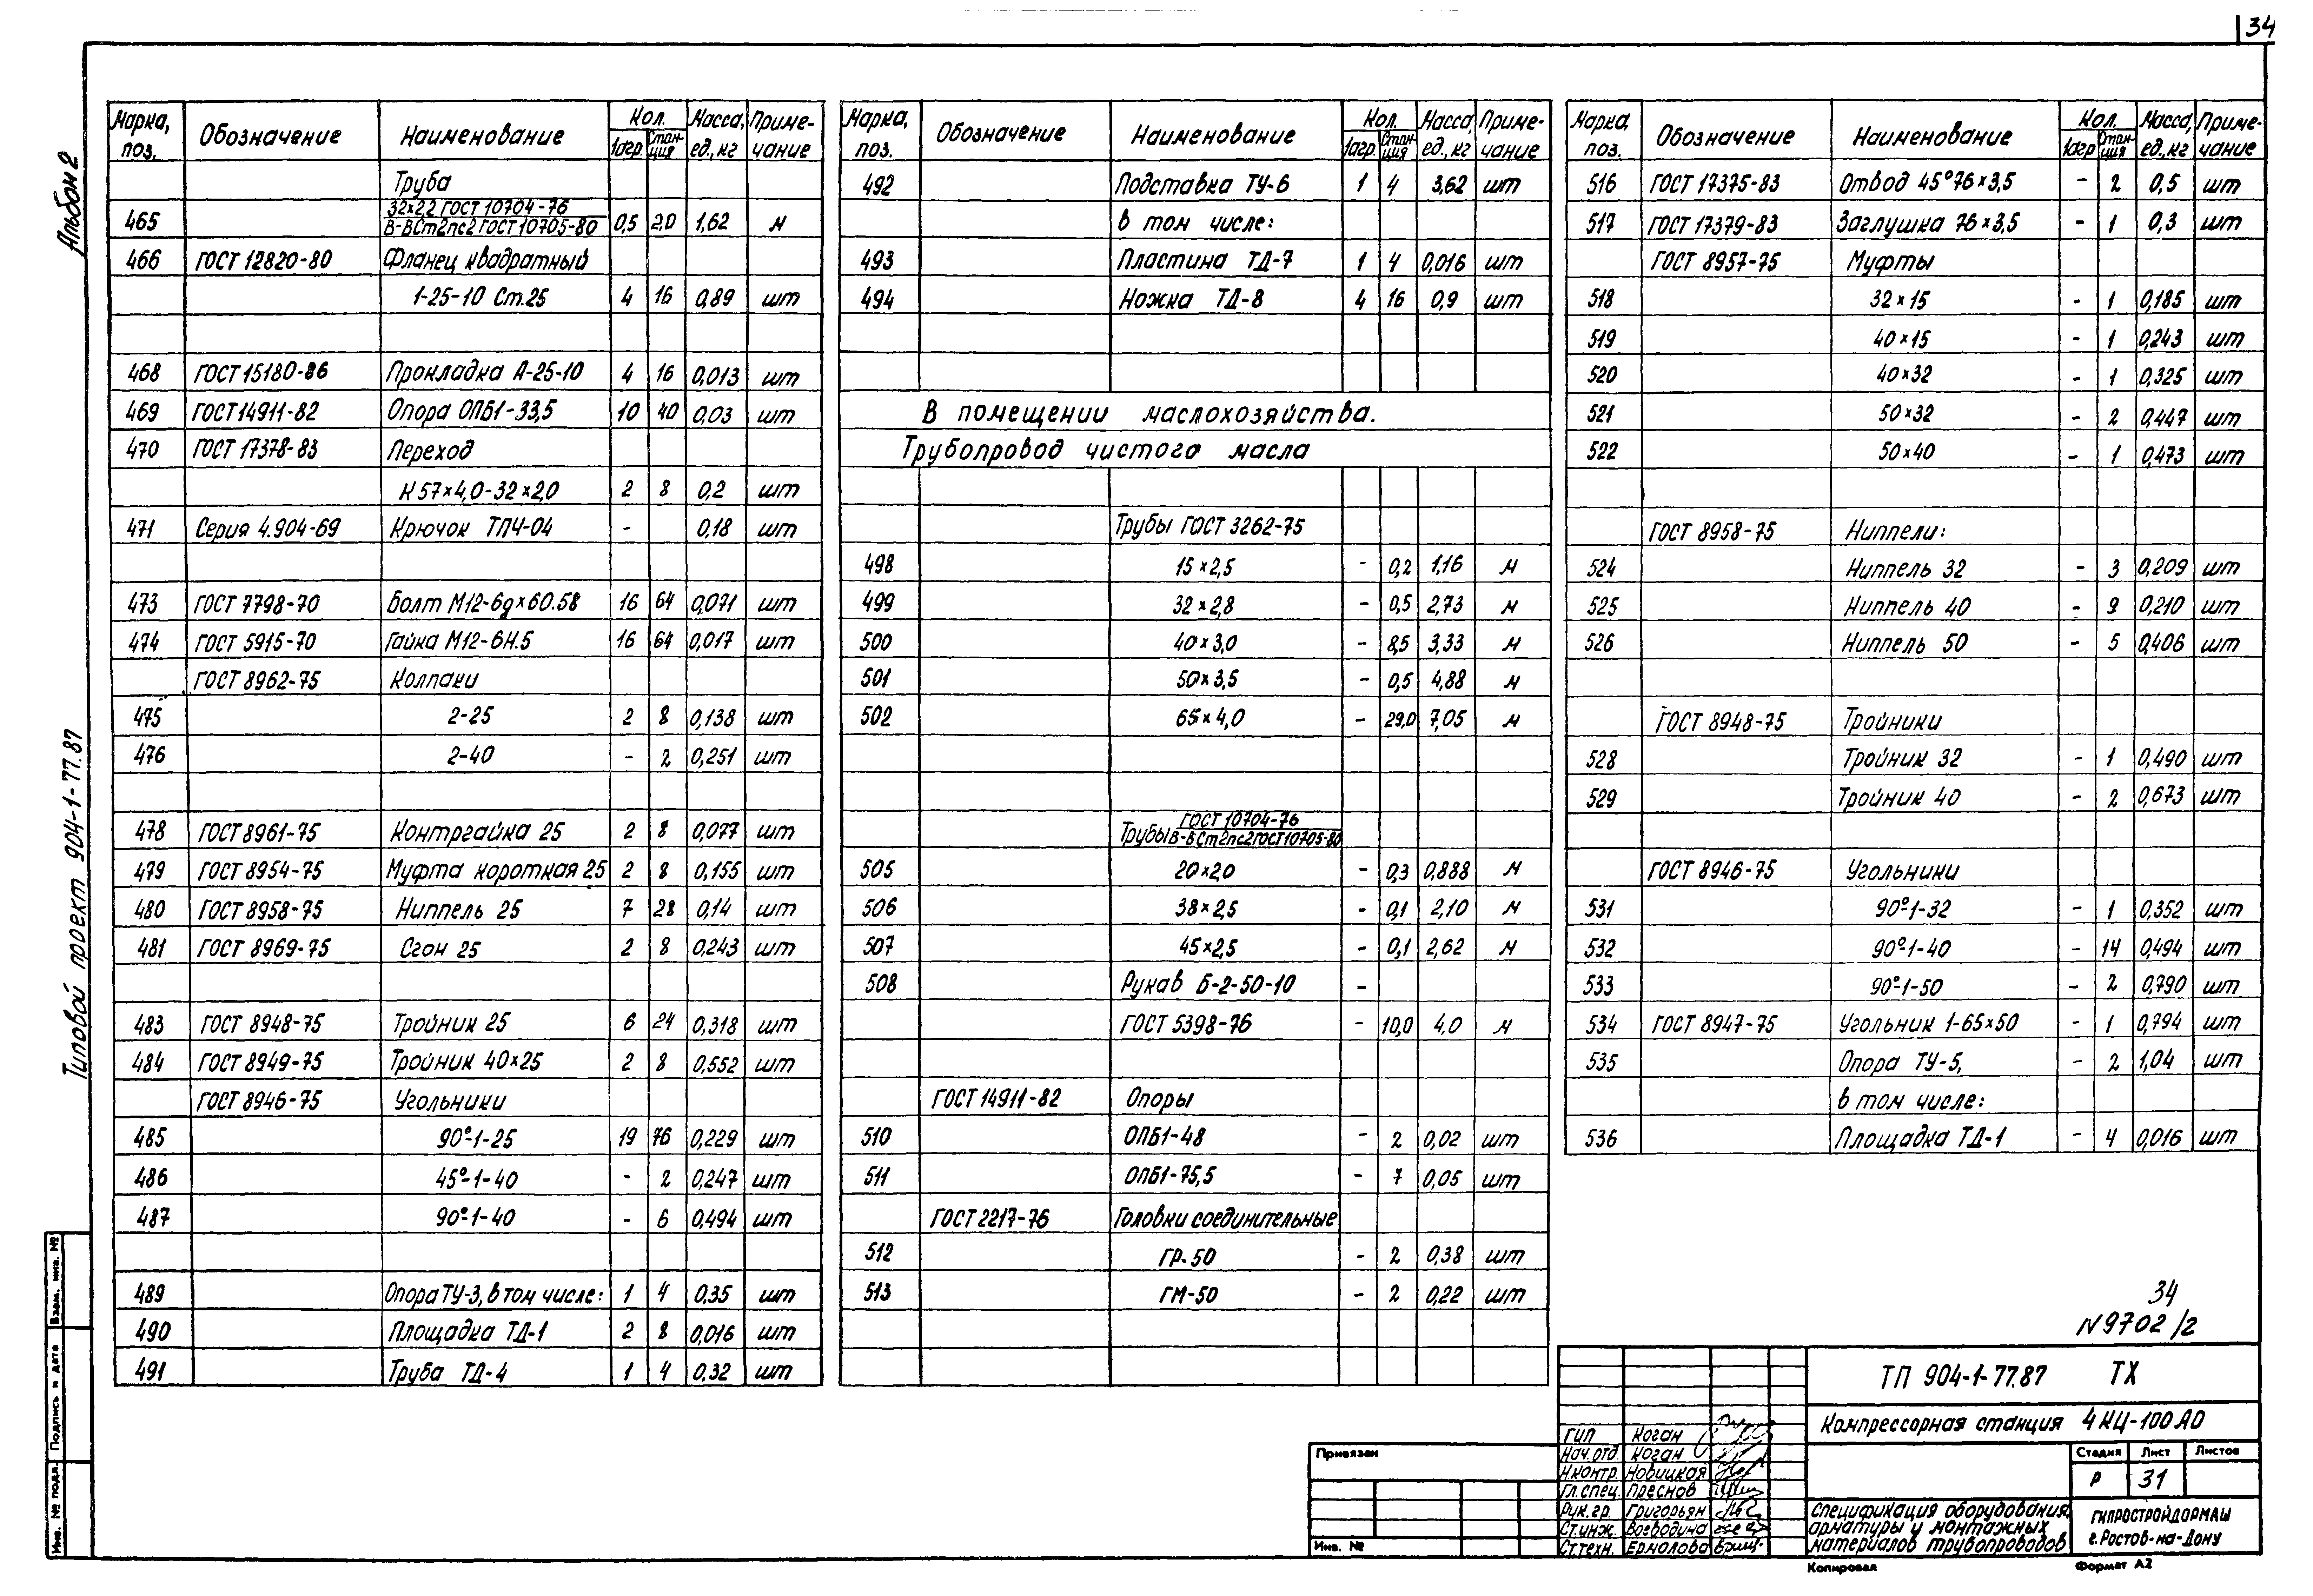 34
Альбом 2
Типовой проект 904-1-77.87
Марка, поз. Обозначение Наименование Кол. 1агр. Станция Масса, ед., кг Примечание
Труба
465 32×2,2 ГОСТ 10704-76 / В-ВСт2пс2 ГОСТ 10705-80 0,5 2,0 1,62 м
466 ГОСТ 12820-80 Фланец квадратный
1-25-10 Ст.25 4 16 0,89 шт
468 ГОСТ 15180-86 Прокладка А-25-10 4 16 0,013 шт
469 ГОСТ 14911-82 Опора ОПБ1-33,5 10 40 0,03 шт
470 ГОСТ 17378-83 Переход
К 57×4,0-32×2,0 2 8 0,2 шт
471 Серия 4.904-69 Крючок ТПЧ-04 - 0,18 шт
473 ГОСТ 7798-70 Болт М12-6g×60.58 16 64 0,071 шт
474 ГОСТ 5915-70 Гайка М12-6Н.5 16 64 0,017 шт
ГОСТ 8962-75 Колпаки
475 2-25 2 8 0,138 шт
476 2-40 - 2 0,251 шт
478 ГОСТ 8961-75 Контргайка 25 2 8 0,077 шт
479 ГОСТ 8954-75 Муфта короткая 25 2 8 0,155 шт
480 ГОСТ 8958-75 Ниппель 25 7 28 0,14 шт
481 ГОСТ 8969-75 Сгон 25 2 8 0,243 шт
483 ГОСТ 8948-75 Тройник 25 6 24 0,318 шт
484 ГОСТ 8949-75 Тройник 40×25 2 8 0,552 шт
ГОСТ 8946-75 Угольники
485 90°-1-25 19 76 0,229 шт
486 45°-1-40 - 2 0,247 шт
487 90°-1-40 - 6 0,494 шт
489 Опора ТУ-3, в том числе: 1 4 0,35 шт
490 Площадка ТД-1 2 8 0,016 шт
491 Труба ТД-4 1 4 0,32 шт
Марка, поз. Обозначение Наименование Кол. 1агр. Станция Масса, ед., кг Примечание
492 Подставка ТУ-6 1 4 3,62 шт
в том числе:
493 Пластина ТД-7 1 4 0,016 шт
494 Ножка ТД-8 4 16 0,9 шт
В помещении маслохозяйства.
Трубопровод чистого масла
Трубы ГОСТ 3262-75
498 15×2,5 - 0,2 1,16 м
499 32×2,8 - 0,5 2,73 м
500 40×3,0 - 8,5 3,33 м
501 50×3,5 - 0,5 4,88 м
502 65×4,0 - 29,0 7,05 м
Трубы ГОСТ 10704-76 / В-ВСт2пс2 ГОСТ 10705-80
505 20×2,0 - 0,3 0,888 м
506 38×2,5 - 0,1 2,10 м
507 45×2,5 - 0,1 2,62 м
508 Рукав Б-2-50-10 -
ГОСТ 5398-76 - 10,0 4,0 м
ГОСТ 14911-82 Опоры
510 ОПБ1-48 - 2 0,02 шт
511 ОПБ1-75,5 - 7 0,05 шт
ГОСТ 2217-76 Головки соединительные
512 ГР-50 - 2 0,38 шт
513 ГМ-50 - 2 0,22 шт
Марка, поз. Обозначение Наименование Кол. 1агр Станция Масса, ед., кг Примечание
516 ГОСТ 17375-83 Отвод 45°76×3,5 - 2 0,5 шт
517 ГОСТ 17379-83 Заглушка 76×3,5 - 1 0,3 шт
ГОСТ 8957-75 Муфты
518 32×15 - 1 0,185 шт
519 40×15 - 1 0,243 шт
520 40×32 - 1 0,325 шт
521 50×32 - 2 0,447 шт
522 50×40 - 1 0,473 шт
ГОСТ 8958-75 Ниппели:
524 Ниппель 32 - 3 0,209 шт
525 Ниппель 40 - 9 0,210 шт
526 Ниппель 50 - 5 0,406 шт
ГОСТ 8948-75 Тройники
528 Тройник 32 - 1 0,490 шт
529 Тройник 40 - 2 0,673 шт
ГОСТ 8946-75 Угольники
531 90°-1-32 - 1 0,352 шт
532 90°-1-40 - 14 0,494 шт
533 90°-1-50 - 2 0,790 шт
534 ГОСТ 8947-75 Угольник 1-65×50 - 1 0,794 шт
535 Опора ТУ-5, - 2 1,04 шт
в том числе:
536 Площадка ТД-1 - 4 0,016 шт
34
N9702/2
ТП 904-1-77.87 ТХ
Компрессорная станция 4КЦ-100АО
Стадия Лист Листов
Р 31
Спецификация оборудования, арматуры и монтажных материалов трубопроводов
ГИПРОСТРОЙДОРМАШ
г.Ростов-на-Дону
ГИП Коган
Нач.отд. Коган
Н.контр. Новицкая
Гл.спец. Преснов
Рук.гр. Григорьян
Ст.инж. Воеводина
Ст.техн. Ермолова
Привязан
Инв. №
Копировал Формат А2
Взам. инв. №
Подпись и дата
Инв. № подл.